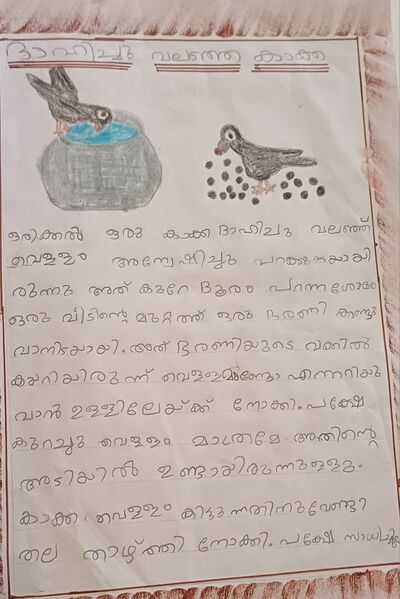 ദാഹിച്ചു വലഞ്ഞ കാക്ക
ഒരിക്കൽ ഒരു കാക്ക ദാഹിച്ചു വലഞ്ഞ്
വെള്ളം അന്വേഷിച്ചു പറക്കുകയായി
രുന്നു അത് കുറേ ദൂരം പറന്നശേഷം
ഒരു വീടിന്റെ മുറ്റത്ത് ഒരു ഭരണി കണ്ടു
വാനിടയായി. അത് ഭരണിയുടെ വക്കിൽ
കയറിയിരുന്ന് വെള്ളമുണ്ടോ എന്നറിയു
വാൻ ഉള്ളിലേയ്ക്ക് നോക്കി. പക്ഷേ
കുറച്ചു വെള്ളം മാത്രമേ അതിന്റെ
അടിയിൽ ഉണ്ടായിരുന്നുള്ളു.
കാക്ക വെള്ളം കിട്ടുന്നതിനുവേണ്ടി
തല താഴ്ത്തി നോക്കി. പക്ഷേ